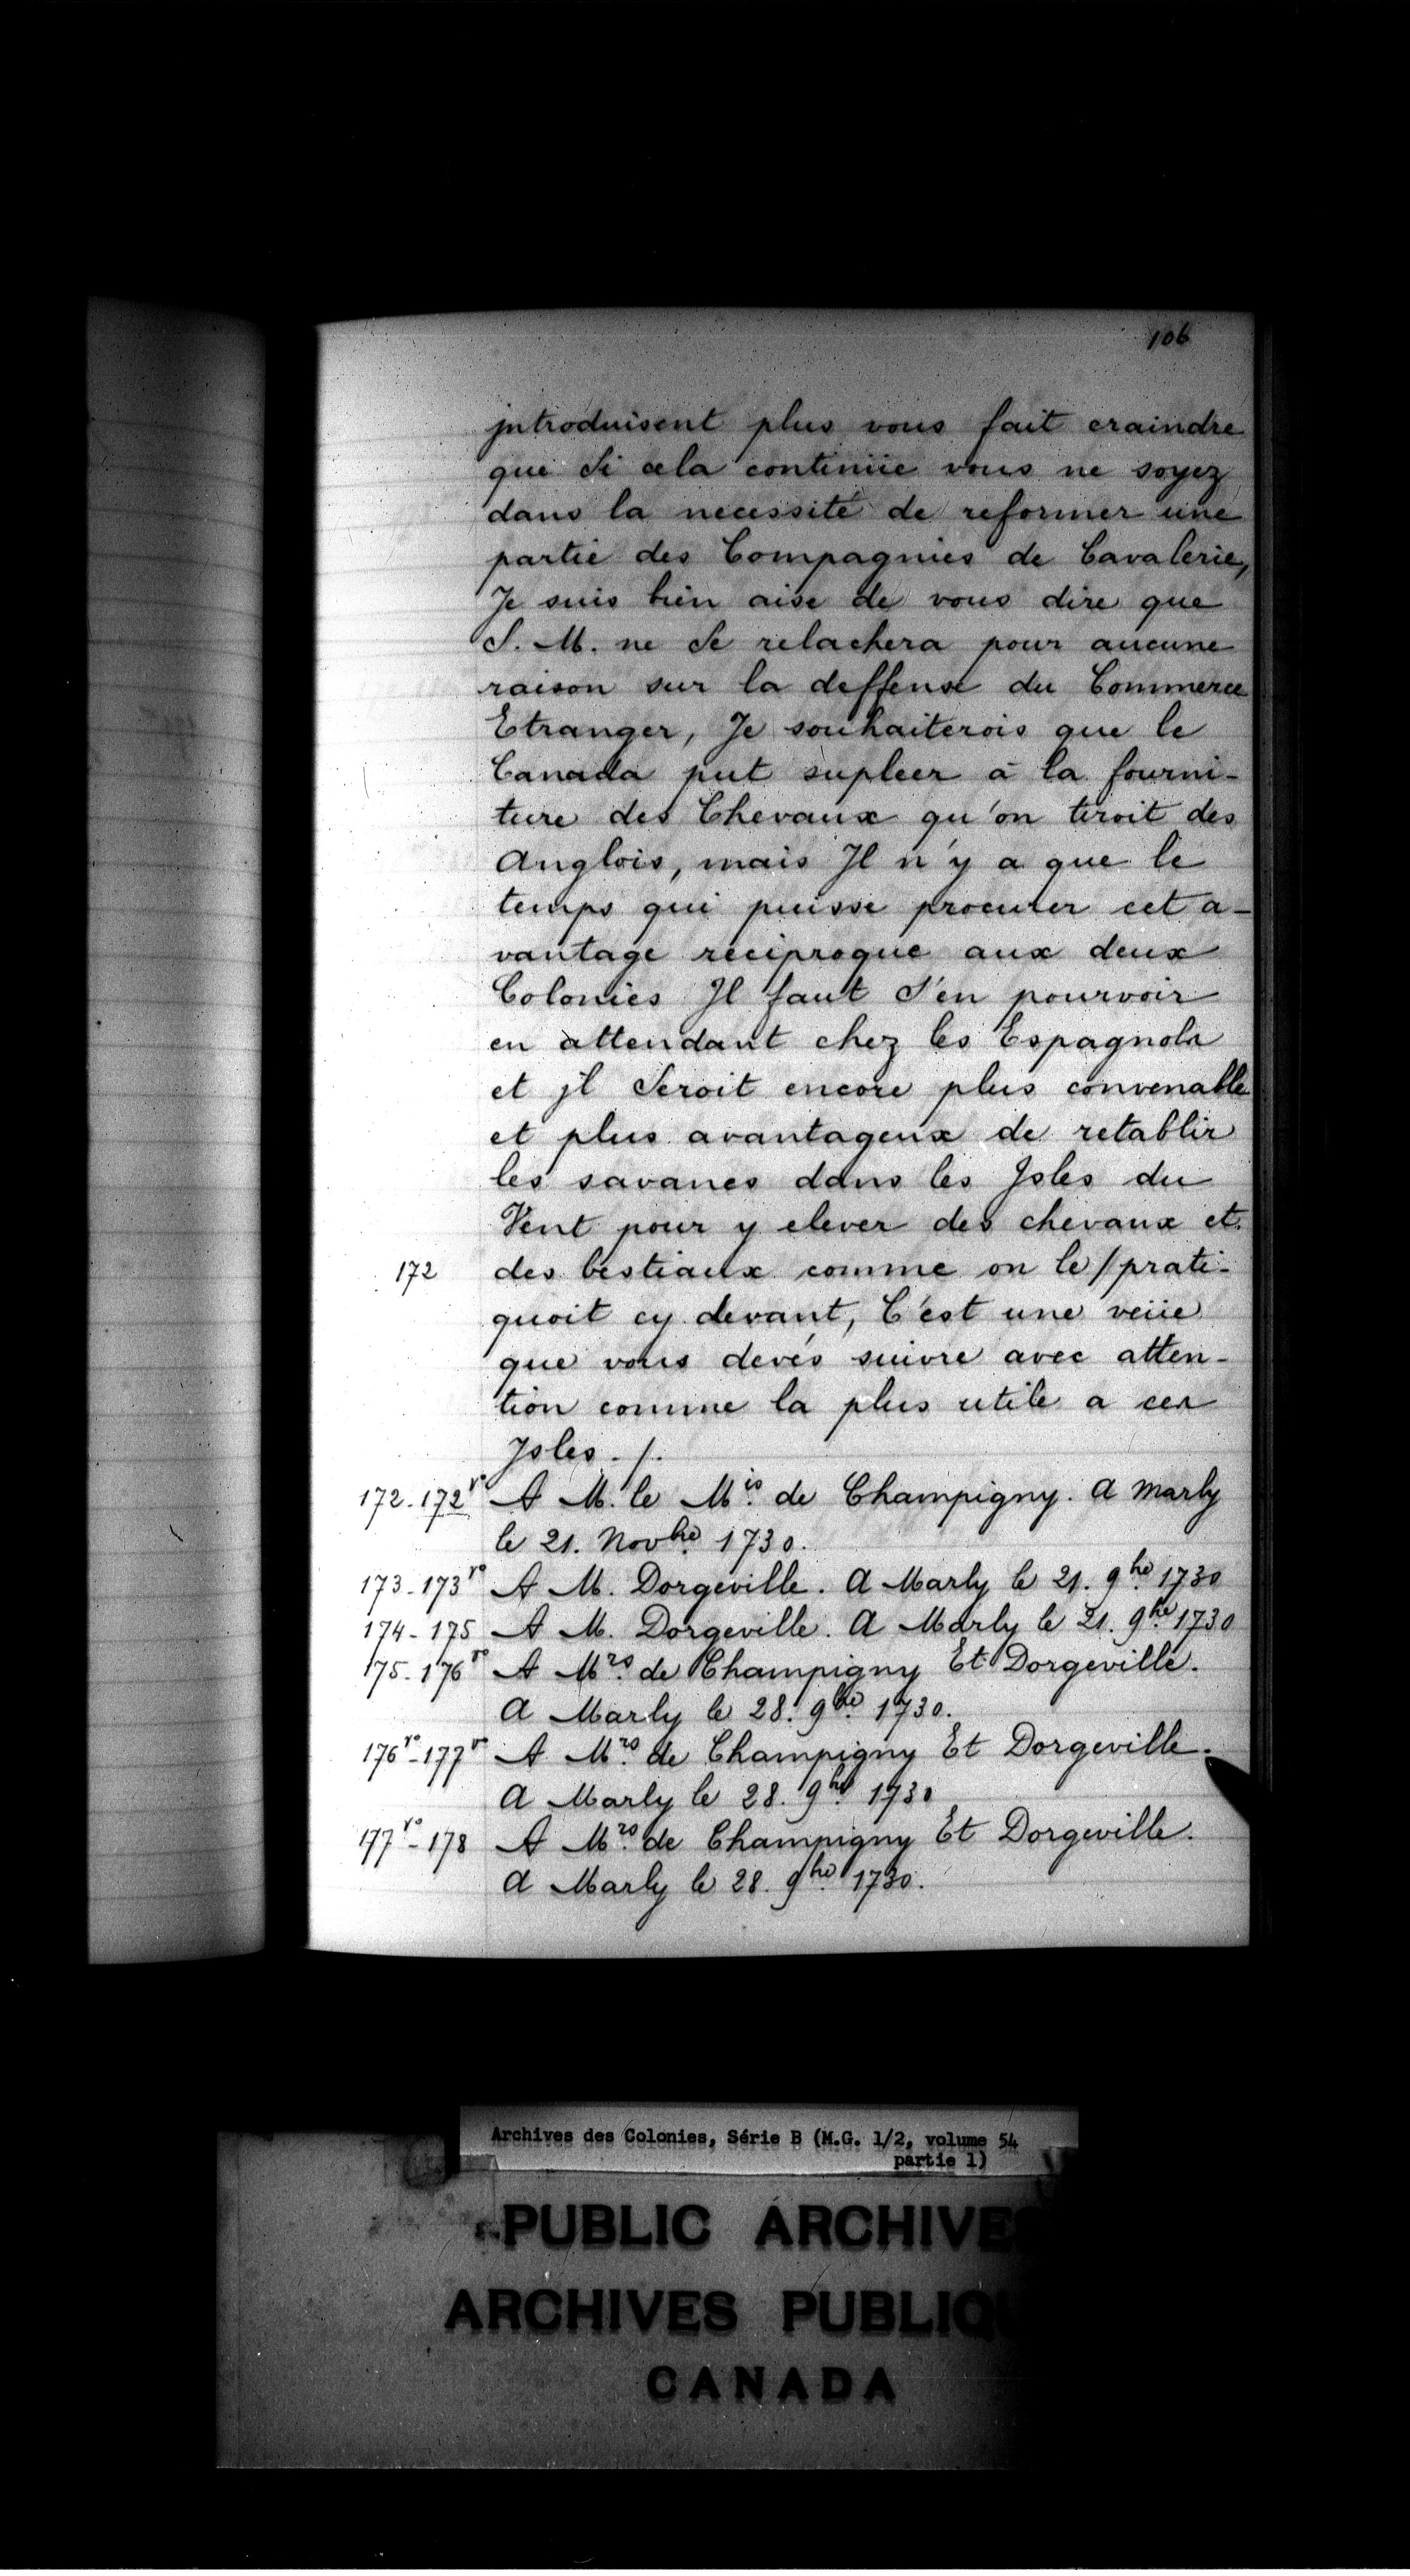 106
introduisent plus vous fait craindre
que Si cela continüe vous ne soyez
dans la necessité de reformer une
partie des Compagnies de Cavalerie,
Je suis bien aise de vous dire que
S. M. ne Se relachera pour aucune
raison sur la deffense du Commerce
Etranger, Je souhaiterois que le
Canada put supleer à la fourni-
ture des Chevaux qu'on tiroit des
Anglois, mais Jl n'y a que le
temps qui puisse procurer cet a-
vantage reciproque aux deux
Colonies Jl faut S'en pourvoir
en attendant chez les Espagnols
et jl Seroit encore plus convenable
et plus avantageux de retablir
les savanes dans les Jsles du
Vent pour y elever des chevaux et
172 des bestiaux comme on le / prati-
quoit cy devant, C'est une veüe
que vous devés suivre avec atten-
tion comme la plus utile a ces
Jsles ./.
172-172 vo A M. le Mis de Champigny. A Marly
le 21. Novbre 1730.
173-173 vo A M. Dorgeville. A Marly le 21. 9bre 1730
174-175 A M. Dorgeville. A Marly le 21. 9bre 1730
175-176 vo A Mrs de Champigny Et Dorgeville.
A Marly le 28. 9bre 1730.
176 vo-177 vo A Mrs de Champigny Et Dorgeville.
A Marly le 28. 9bre 1730
177 vo-178 A Mrs de Champigny Et Dorgeville.
A Marly le 28. 9bre 1730.
Archives des Colonies, Série B (M.G. 1/2, volume 54
partie 1)
PUBLIC ARCHIVES
ARCHIVES PUBLIQU
CANADA